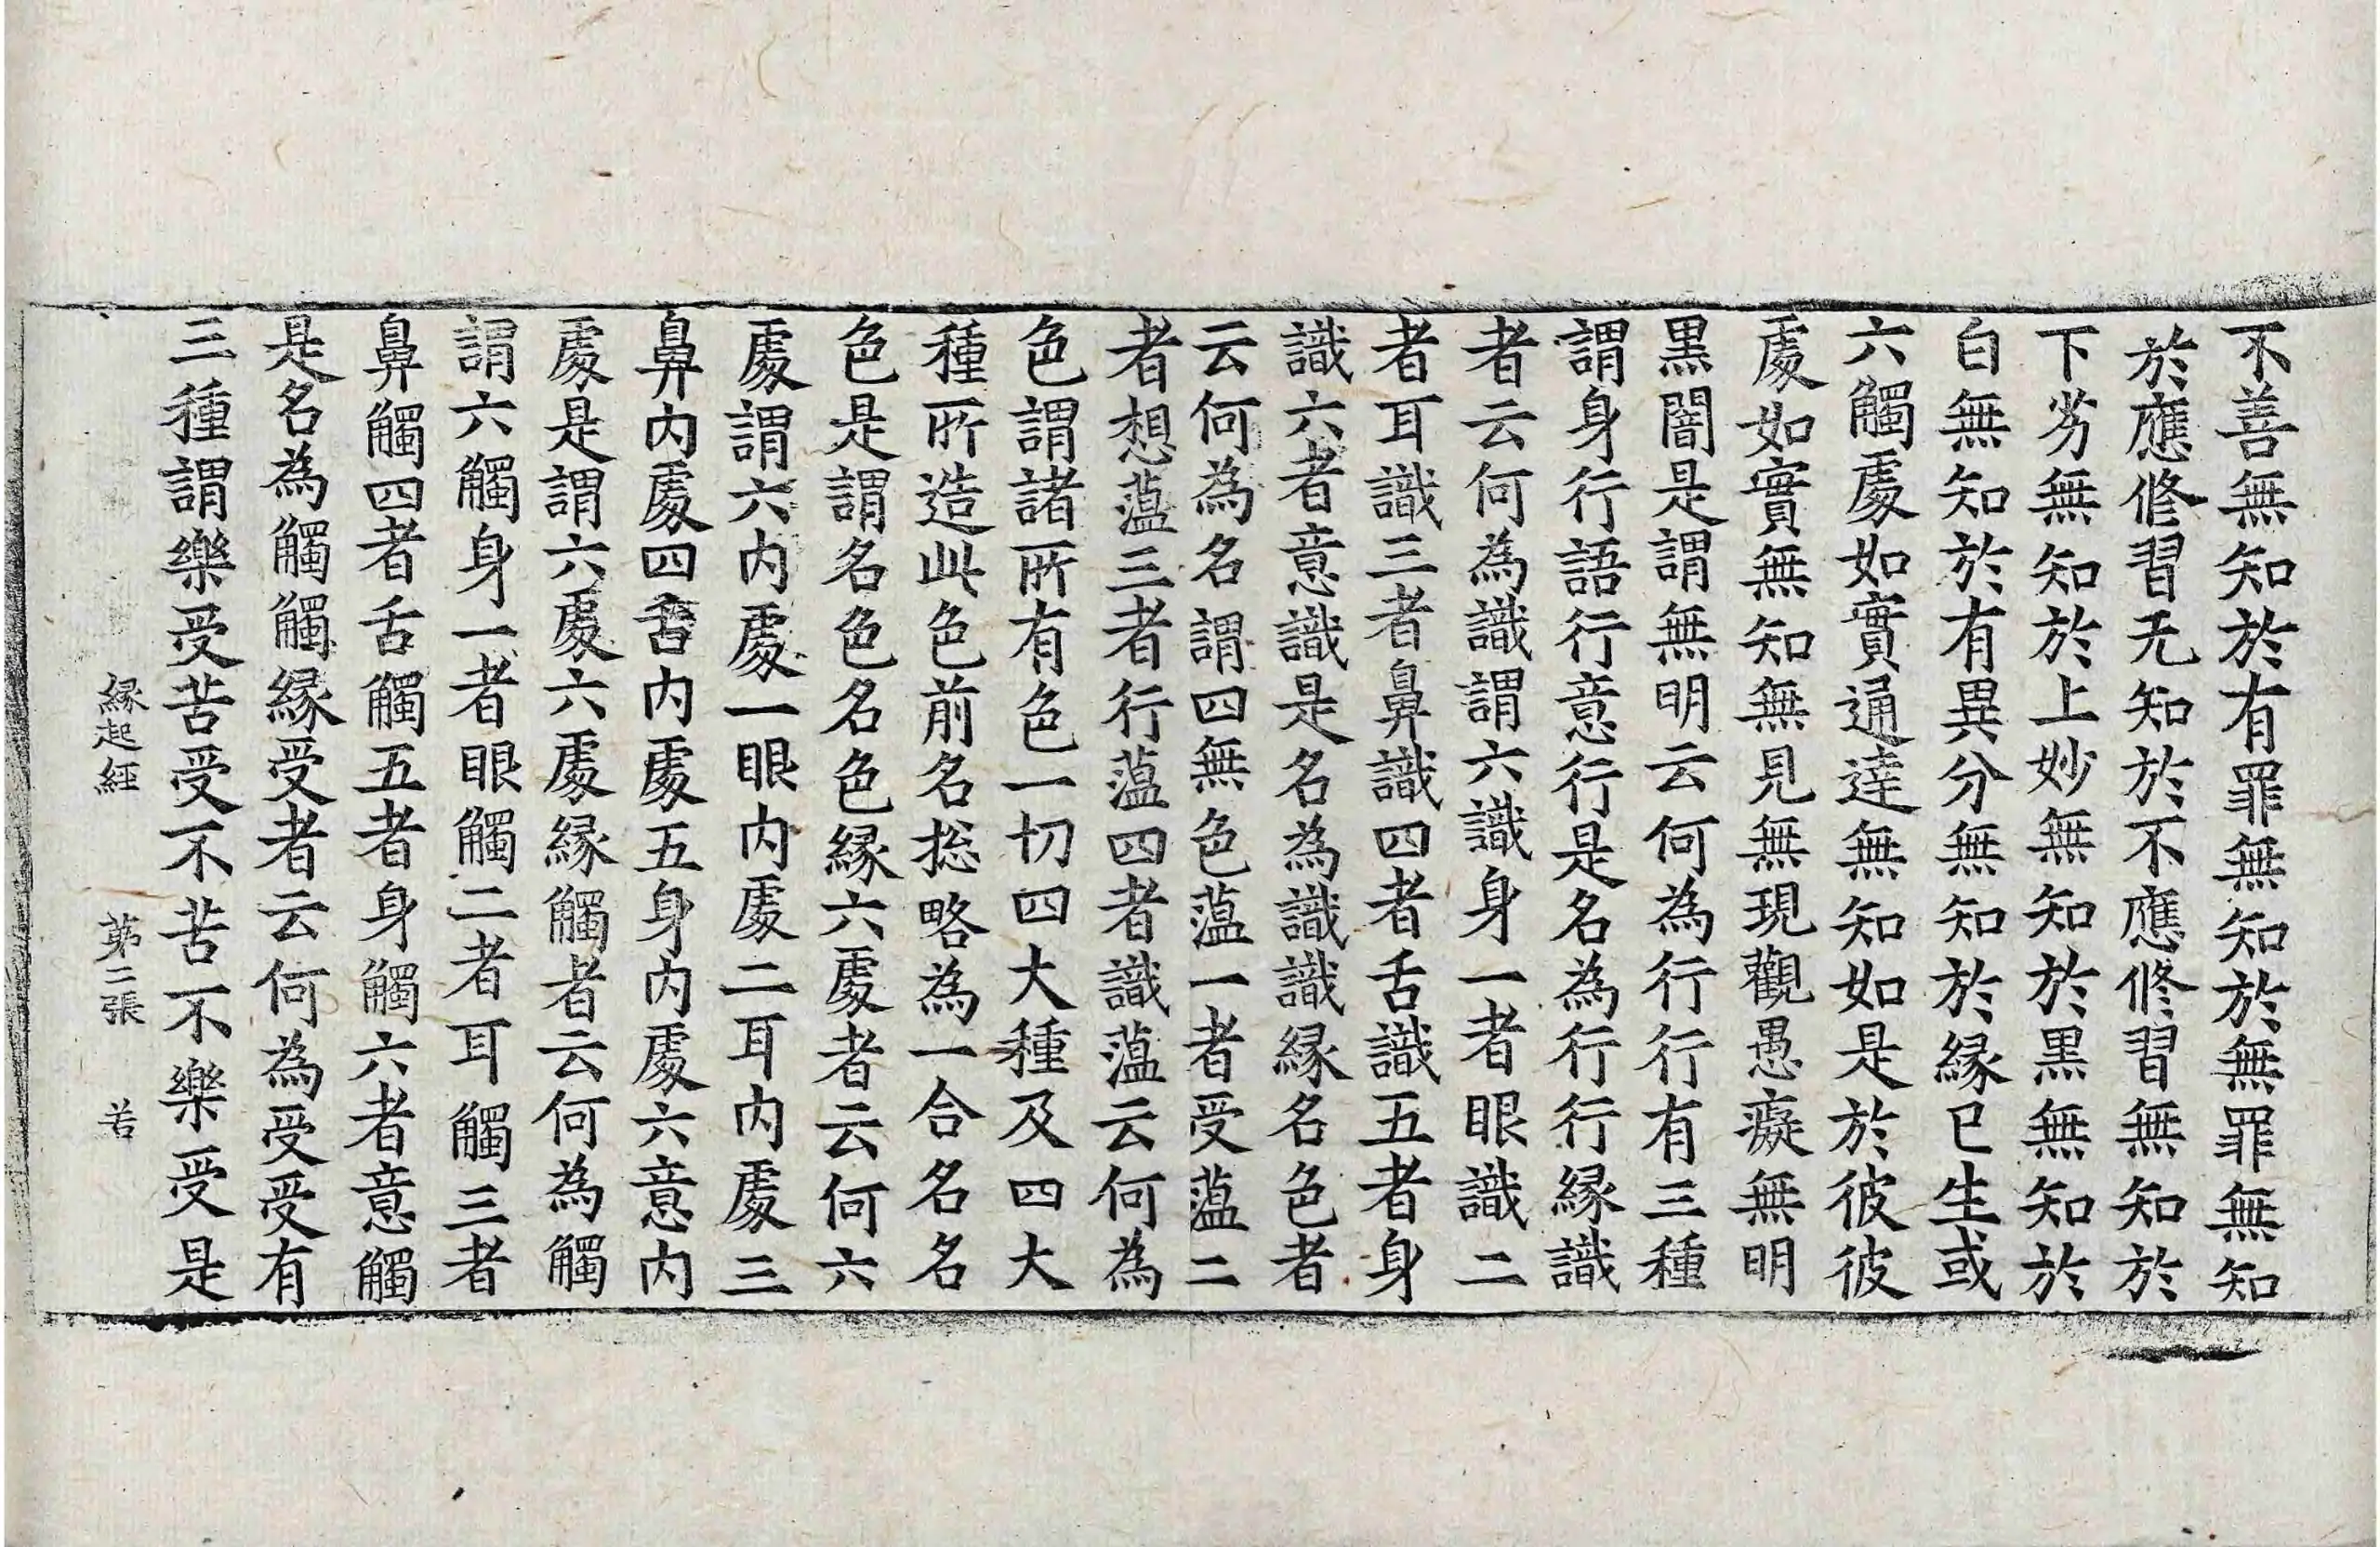 不善無知於有罪無知於無罪無知
於應修習无知於不應修習無知於
下劣無知於上妙無知於黒無知於
白無知於有異分無知於縁已生或
六觸處如實通達無知如是於彼彼
處如實無知無見無現觀愚癡無明
黒闇是謂無明云何為行行有三種
謂身行語行意行是名為行行縁識
者云何為識謂六識身一者眼識二
者耳識三者鼻識四者舌識五者身
識六者意識是名為識識縁名色者
云何為名謂四無色蕰一者受蕰二
者想蕰三者行蕰四者識蕰云何為
色謂諸所有色一切四大種及四大
種所造此色前名捴略為一合名名
色是謂名色名色縁六處者云何六
處謂六内處一眼内處二耳内處三
鼻内處四舌内處五身内處六意内
處是謂六處六處縁觸者云何為觸
謂六觸身一者眼觸二者耳觸三者
鼻觸四者舌觸五者身觸六者意觸
是名為觸觸縁受者云何為受受有
三種謂樂受苦受不苦不樂受是
縁起經 苐二張 若